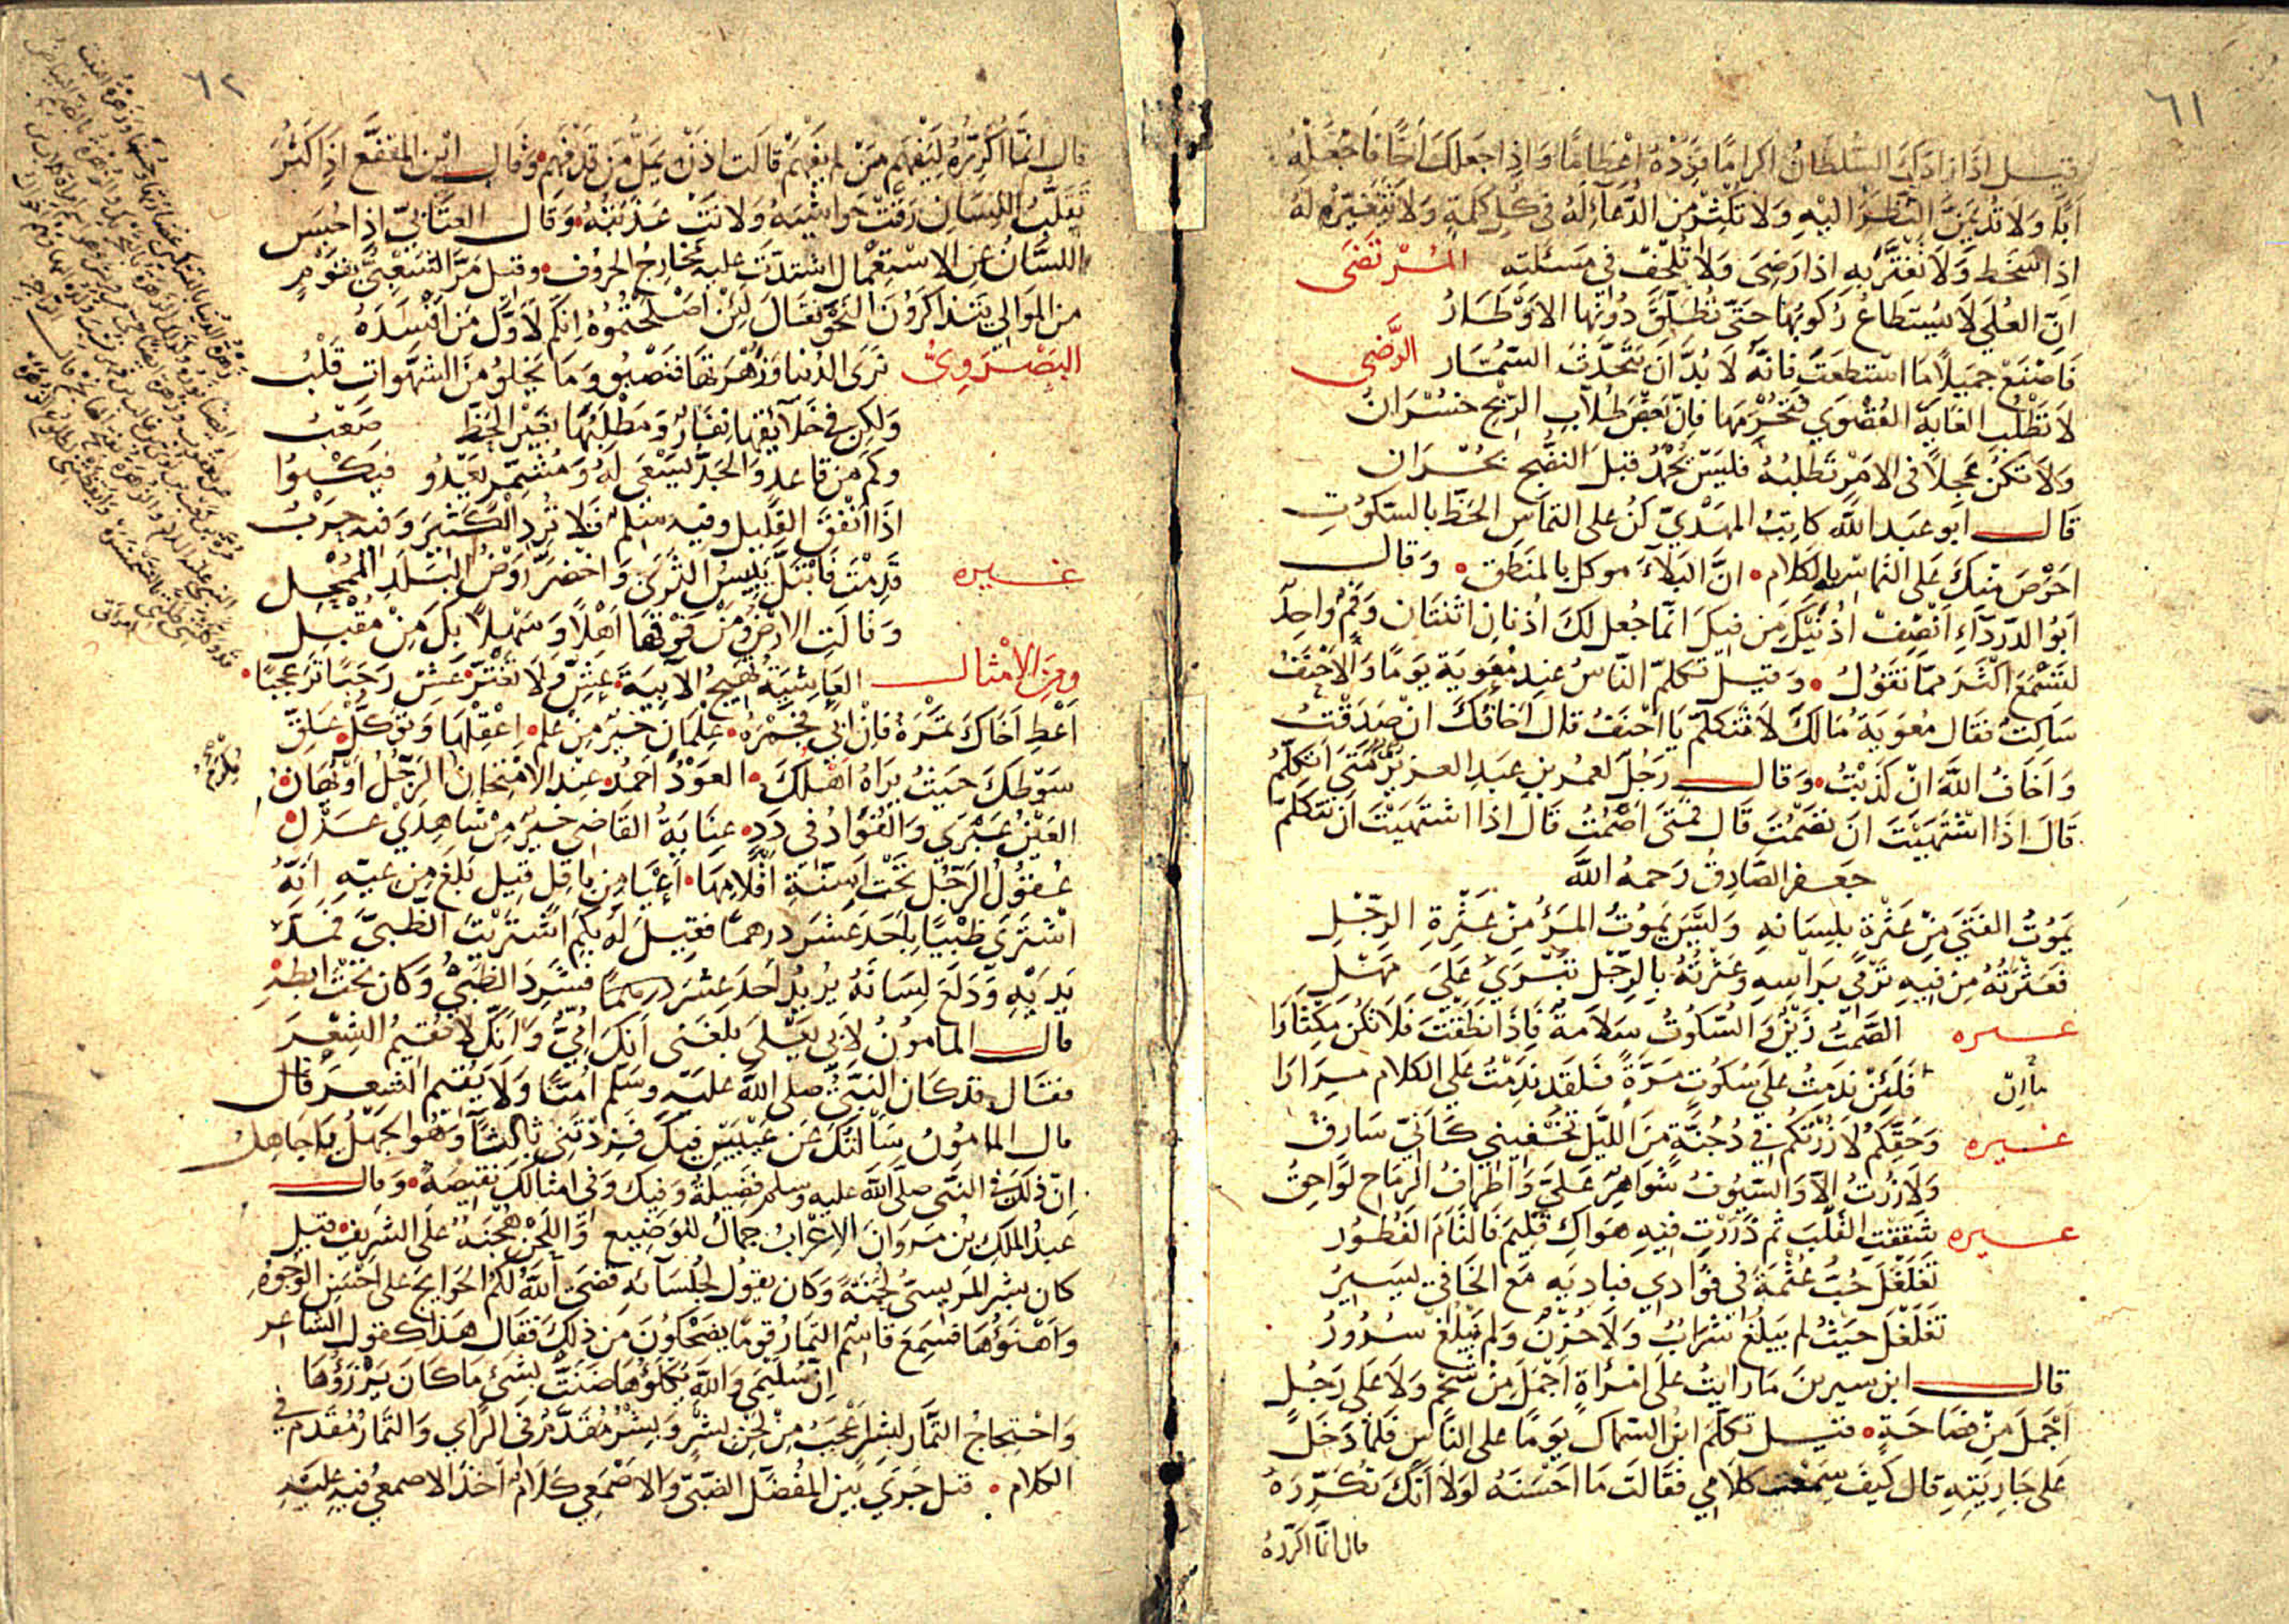 ٦١
قيل اذا زادك السلطان اكراما فزده اعظاما واذا جعلك اخا فاجعله
ابا ولا تديمن النظر اليه ولا تكثر من الدعاء له في كل كلمة ولا تتغير له
اذا سخط ولا تغتر به اذا رضى ولا تلحف في مسئلته المرتضى
ان العلى لا يستطاع ركوبها حتى تطلق دونها الاوطار
فاصنع جميلا ما استطعت فانه لا بد ان يتحدث السمار الرضى
لا تطلب الغاية القصوى فتحرمها فان بعض طلاب الربح خسران
ولا تكن عجلا في الامر تطلبه فليس يحمد قبل النضج بحران
قال ابو عبد الله كاتب المهدي كن على التماس الحظ بالسكوت
احرص منك على التماسه بالكلام • ان البلاء موكل بالمنطق • وقال
ابو الدرداء انصف اذنيك من فيك انما جعل لك اذنان اثنتان وفم واحد
لتسمع اكثر مما تقول • وقيل تكلم الناس عند معوية يوما والاحنف
ساكت فقال معوية مالك لا تتكلم يا احنف قال اخافك ان صدقت
واخاف الله ان كذبت • وقال رجل لعمر بن عبد العزيز متى اتكلم
قال اذا اشتهيت ان تصمت قال فمتى اصمت قال اذا اشتهيت ان تتكلم
جعفر الصادق رحمه الله
يموت الفتى من عثرة بلسانه وليس يموت المرء من عثرة الرجل
فعثرته من فيه ترمي براسه وعثرته بالرجل تبرى على مهل
غيره الصمت زين والسكوت سلامة فاذا نطقت فلا تكن مكثارا
ما ان فلئن ندمت على سكوت مرة فلقد ندمت على الكلام مرارا
غيره وحقكم لا زرتكم في دجنة من الليل تخفيني كأني سارق
ولا زرت الا والسيوف شواهر علي واطراف الرماح لواحق
غيره شققت القلب ثم ذررت فيه هواك فليم فالتام الفطور
تغلغل حب عثمة في فؤادي فباديه مع الخافي يسير
تغلغل حيث لم يبلغ شراب ولا حزن ولم يبلغ سرور
قال ابن سيرين ما رايت على امرأة اجمل من شحم ولا على رجل
اجمل من فصاحة • قيل تكلم ابن السماك يوما على الناس فلما دخل
على جاريته قال كيف سمعت كلامي فقالت ما احسنه لولا انك تكرره
قال انما اكرره
٦٢
قال انما اكرره ليفهم من لم يفهم قالت اذن يمل من قد فهم • وقال ابن المقفع اذا كثر
تقلب اللسان رقت حواشيه ولانت عذبته • وقال العتابي اذا حبس
اللسان عن الاستعمال اشتدت عليه مخارج الحروف • وقيل مر الشعبي بقوم
من الموالي يتذاكرون النحو فقال لئن اصلحتموه انكم لاول من افسده
البصروي نرى الدنيا وزهرتها فنصبو وما يخلو من الشهوات قلب
ولكن في خلائقها نفار ومطلبها بغير الحظ صعب
وكم من قاعد والجد يسعى له ومشمر يعدو فيكبوا
اذا انفق القليل وفيه سلم فلا ترد الكثير وفيه حرب
غيره قدمت فابتل يبيس الثرى واخضر روض البلد الممحل
وقالت الارض ومن فوقها اهلا وسهلا بك من مقبل
ومن الامثال العاشية تهيج الآبية • عش ولا تغتر • عش رجبا تر عجبا •
اعط اخاك تمرة فان ابى فجمرة • علمان خير من علم • اعقلها وتوكل • علق
سوطك حيث يراه اهلك • العود احمد • عند الامتحان الرجل او يهان •
العين عبرى والفؤاد في دد • عناية القاضي خير من شاهدي عدل •
عقول الرجل تحت اسنة اقلامها • اعيا من باقل قيل بلغ من عيه انه
اشترى ظبيا باحد عشر درهما فقيل له بكم اشتريت الظبي فمد
يديه ودلع لسانه يريد احد عشر درهما فشرد الظبي وكان تحت ابطه
قال المامون لابي يعلى بلغني انك امي وانك لا تقيم الشعر
فقال قد كان النبي صلى الله عليه وسلم اميا ولا يقيم الشعر قال
قال المامون سألتك عن عيبين فيك فزدتني ثالثا وهو الجهل يا جاهل
ان ذلك في النبى صلى الله عليه وسلم فضيلة وفيك وفي امثالك نقيصة • وقال
عبد الملك بن مروان الاعراب جمال للوضيع واللحن هجنة على الشريف • قيل
كان بشر المريسى لحنة وكان يقول لجلسائه قضى الله لكم الحوايج على احسن الوجوه
واهنؤها فسمع قاسم التمار قوما يضحكون من ذلك فقال هذا كقول الشاعر
ان سليمى والله يكلؤها ضنت بشئ ما كان يرزؤها
واحتجاج التمار لبشر اعجب من لحن بشر وبشر مقدم في الراي والتمار مقدم في
الكلام • قيل جرى بين المفضل الضبي والاصمعي كلام اخذ الاصمعي فيه عليه